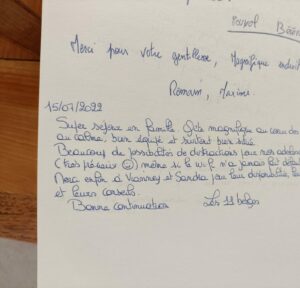 Merci pour votre gentillesse, Magnifique endroit
Romain, Marine
15/07/2022
Super séjour en famille. Gîte magnifique au coeur de
au calme, bien équipé et surtout bien situé.
Beaucoup de possibilités de distractions pour nos adolescents
(très précieux) même si le wifi n'a jamais fait défaut
Merci enfin à Vianney et Sandra pour leur disponibilité, leur
et leurs conseils.
Bonne continuation Les 11 belges